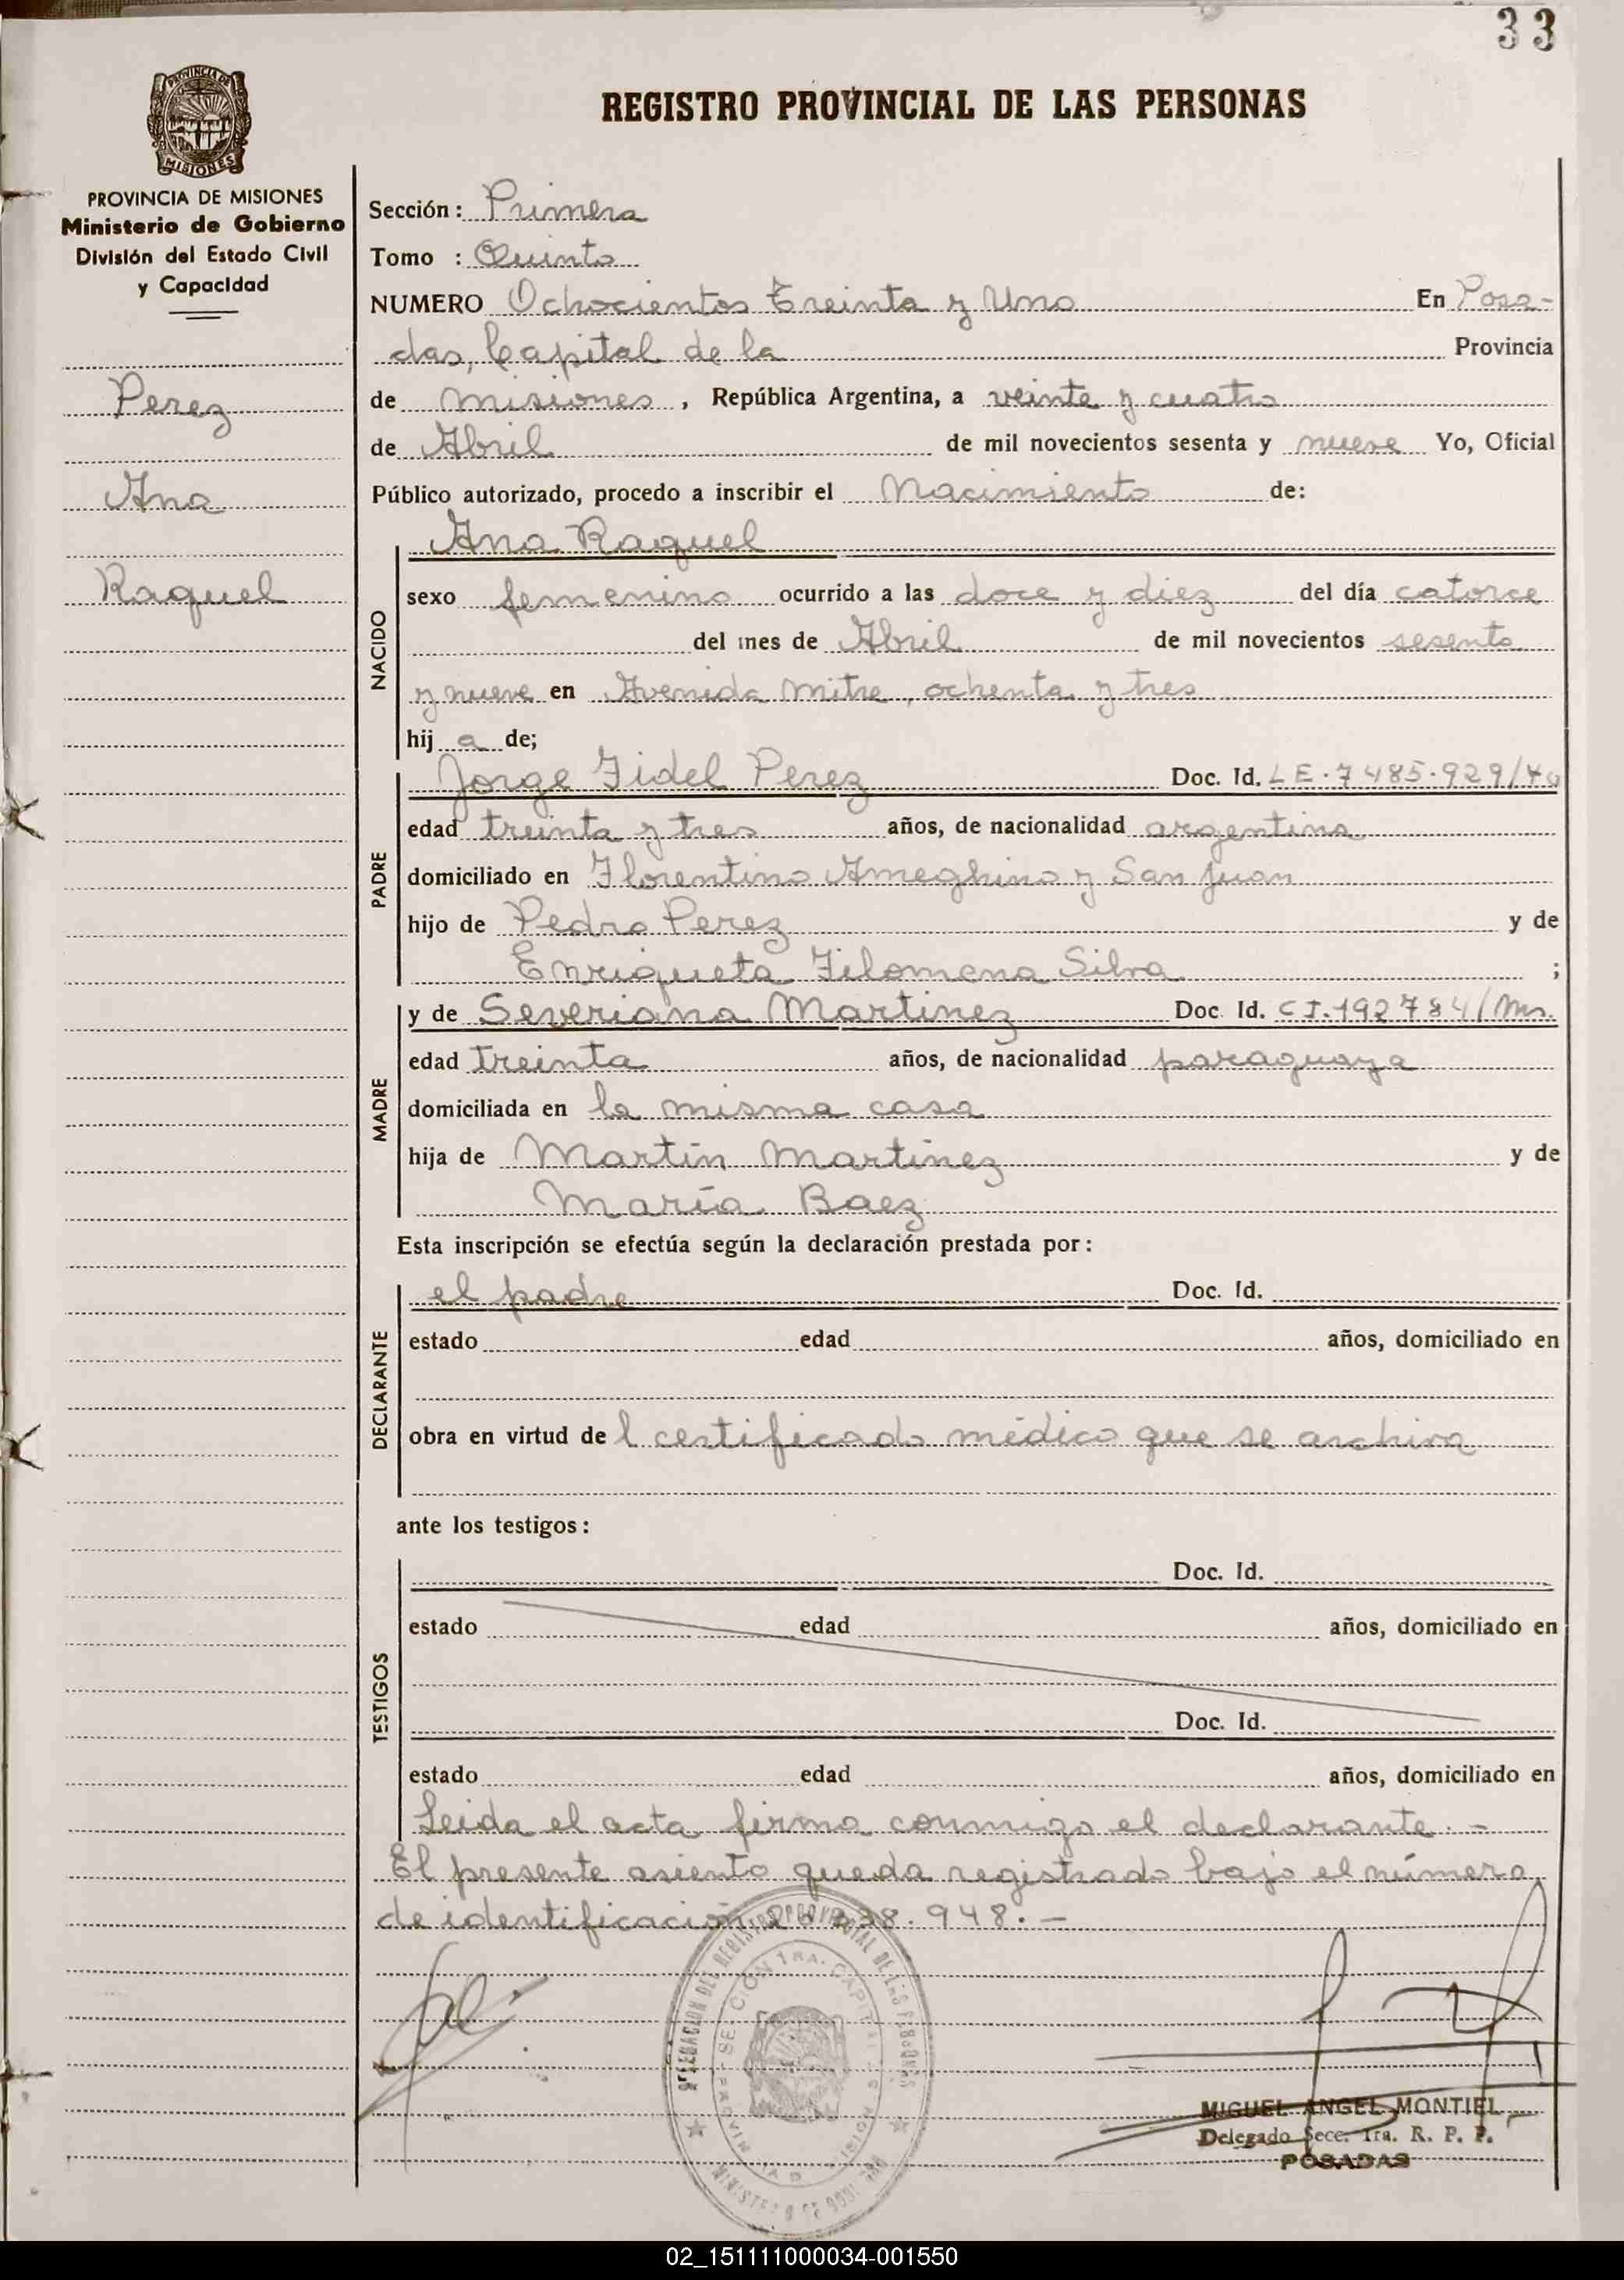 33
REGISTRO PROVINCIAL DE LAS PERSONAS
PROVINCIA DE
MISIONES
PROVINCIA DE MISIONES
Ministerio de Gobierno
División del Estado Civil
y Capacidad
Perez
Ana
Raquel
Sección: Primera
Tomo : Quinto
NUMERO Ochocientos Treinta y Uno En Posa-
das, Capital de la Provincia
de Misiones, República Argentina, a veinte y cuatro
de Abril de mil novecientos sesenta y nueve Yo, Oficial
Público autorizado, procedo a inscribir el Nacimiento de:
NACIDO
Ana Raquel
sexo femenino ocurrido a las doce y diez del día catorce
del mes de Abril de mil novecientos sesenta
y nueve en Avenida Mitre, ochenta y tres
hij a de;
PADRE
Jorge Fidel Perez Doc. Id. LE.7485.929/
edad treinta y tres años, de nacionalidad argentina
domiciliado en Florentino Ameghino y San Juan
hijo de Pedro Perez y de
Enriqueta Filomena Silva ;
MADRE
y de Severiana Martinez Doc. Id. CI.192784/Ms.
edad treinta años, de nacionalidad paraguaya
domiciliada en la misma casa
hija de Martín Martínez y de
María Baez
Esta inscripción se efectúa según la declaración prestada por:
DECLARANTE
el padre Doc. Id.
estado edad años, domiciliado en
obra en virtud de l certificado médico que se archiva
ante los testigos:
TESTIGOS
Doc. Id.
estado edad años, domiciliado en
Doc. Id.
estado edad años, domiciliado en
Leida el acta firma conmigo el declarante. -
El presente asiento queda registrado bajo el número
de identificación 948. -
DELEGACION DEL REGISTRO PROVINCIAL DE LAS PERSONAS
SECCION 1RA. CAPITAL
MIGUEL ANGEL MONTIEL
Delegado Secc. 1ra. R. P. P.
POSADAS
02_151111000034-001550